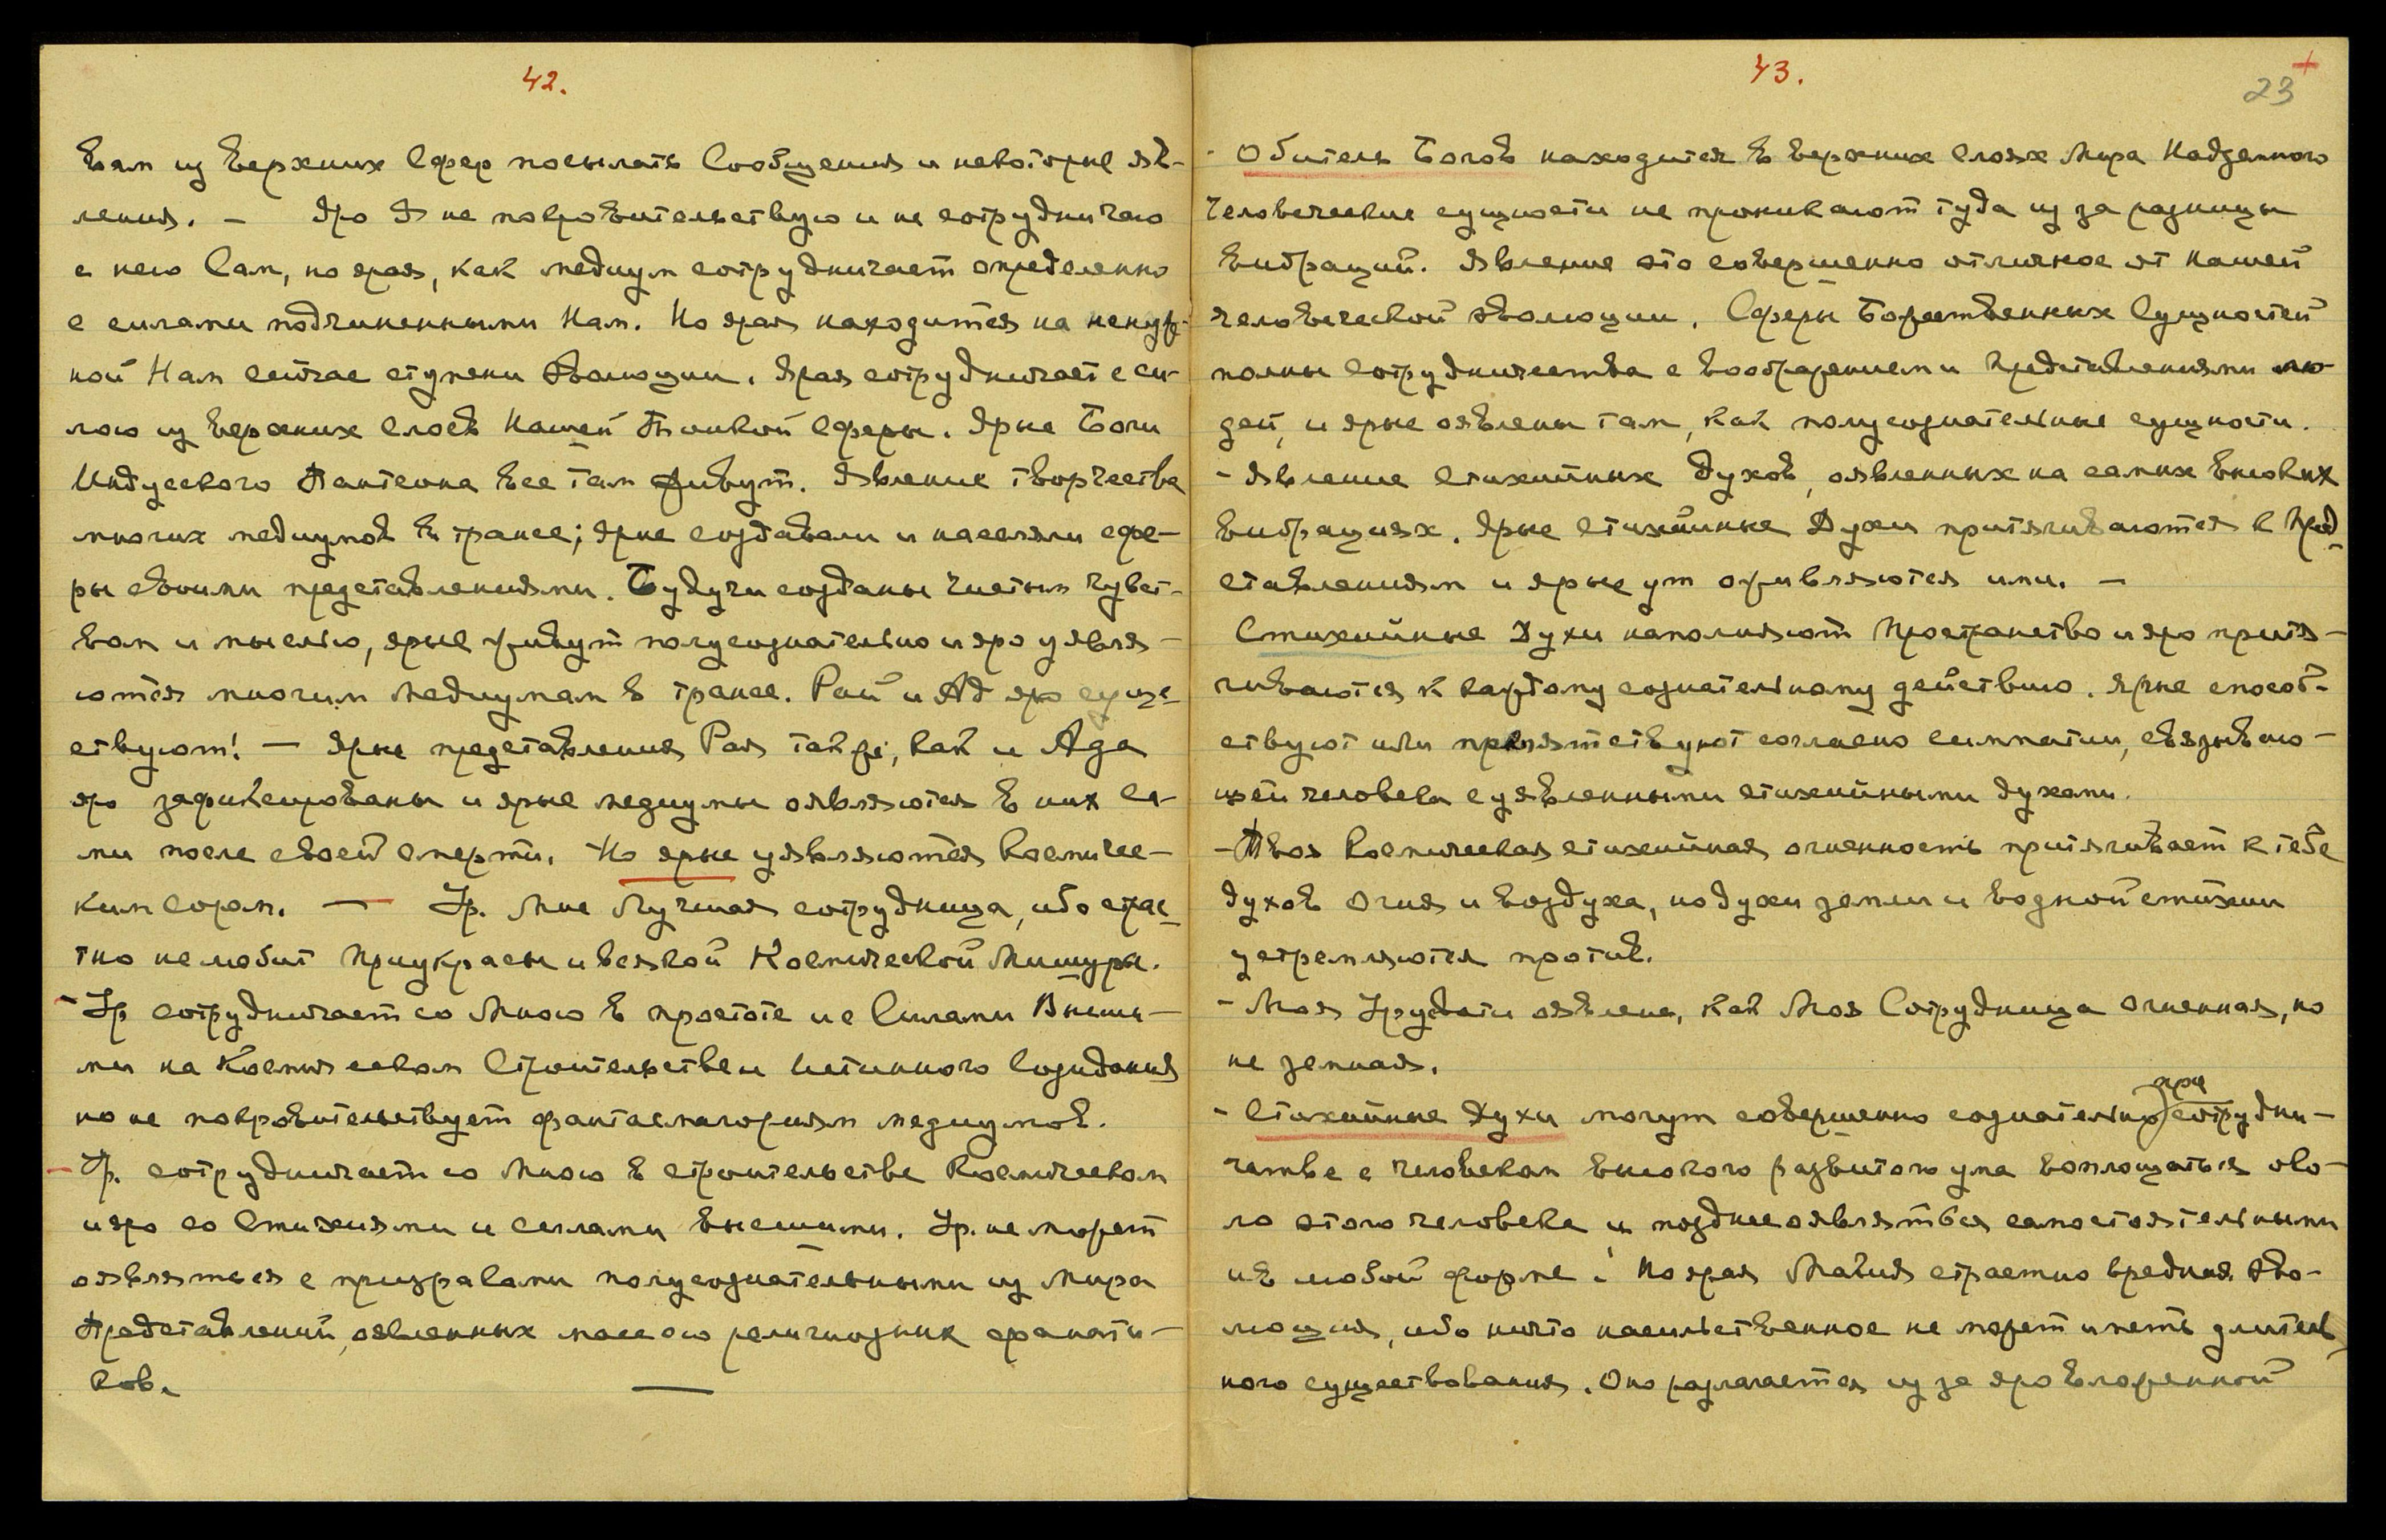 42.
вам из Верхних Сфер посылать Сообщения и некоторые яв-
ления. — Яро Я не покровительствую и не сотрудничаю
с нею Сам, но ярая, как медиум сотрудничает определенно
с силами подчиненными Нам. Но ярая находится на ненуж-
ной Нам сейчас ступени Эволюции. Ярая сотрудничает с си-
лою из Верхних слоев Нашей Тонкой сферы. Ярые Боги
Индусского Пантеона все там живут. Явление творчества
многих медиумов в трансе; ярые создавали и населяли сфе-
ры своими представлениями. Будучи созданы чистым чувст-
вом и мыслью, ярые живут полусознательно и яро уявля-
ются многим медиумам в трансе. Рай и Ад яро суще-
ствуют! — Ярые представления Рая также, как и Ада
яро зафиксированы и ярые медиумы оявляются в них са-
ми после своей смерти. Но ярые уявляются Космичес-
ким сором. — Ур. Мне Лучшая сотрудница, ибо страс-
тно не любит Приукрасы и всякой Космической Мишуры.
- Ур сотрудничает со Мною в простоте и с Силами Высши-
ми на Космическом Строительстве и Истинного Созидания
но не покровительствует фантасмагориям медиумов.
- Ур. сотрудничает со Мною в строительстве Космическом
и яро со Стихиями и силами высшими. Ур. не может
оявляться с призраками полусознательными из Мира
Представлений, оявленных массою религиозных фанати-
ков.
43.
23
- Обитель Богов находится в верхних слоях Мира Надземного
Человеческие сущности не проникают туда из за разницы
вибраций. Явление это совершенно отличное от нашей
человеческой эволюции. Сферы Божественных Сущностей
полны сотрудничества с воображением и Представлениями лю-
дей, и ярые оявлены там, как полусознательные сущности.
- Явление Стихийных Духов, оявленных на самых высоких
вибрациях. Ярые стихийные Духи притягиваются к Пред-
ставлениям и ярые ум оживляются ими. —
Стихийные Духи наполняют Пространство и яро притя-
гиваются к каждому сознательному действию. Ярые способ-
ствуют или препятствуют согласно симпатии, связываю-
щей человека с уявленными стихийными духами.
- Твоя Космическая стихийная огненность притягивает к тебе
духов Огня и Воздуха, но духи земли и водной стихии
устремляются против.
- Моя Урусвати оявлена, как Моя Сотрудница огненная, но
не земная.
- Стихийные Духи могут совершенно сознательно при сотрудни-
честве с человеком высокого развитого ума воплощаться око-
ло этого человека и позднее оявляться самостоятельными
и в любой форме. Но ярая Магия страстно вредная Эво-
люция, ибо ничто насильственное не может иметь длитель-
ного существования. Оно разлагается из за яро вложенной